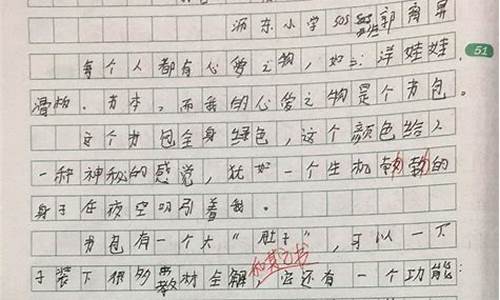 浉东小学505班郭育昇
每个人都有心爱之物，如：洋娃娃、
滑板、书本，而我的心爱之物是个书包。
51
这个书包全身绿色，这个颜色给人
一种神秘的感觉，犹如一个生机勃勃的
身于在夜空吸引着我。
书包有一个大“肚子”，可以一下
子装下很多教材全解和其它书它还有一个功能